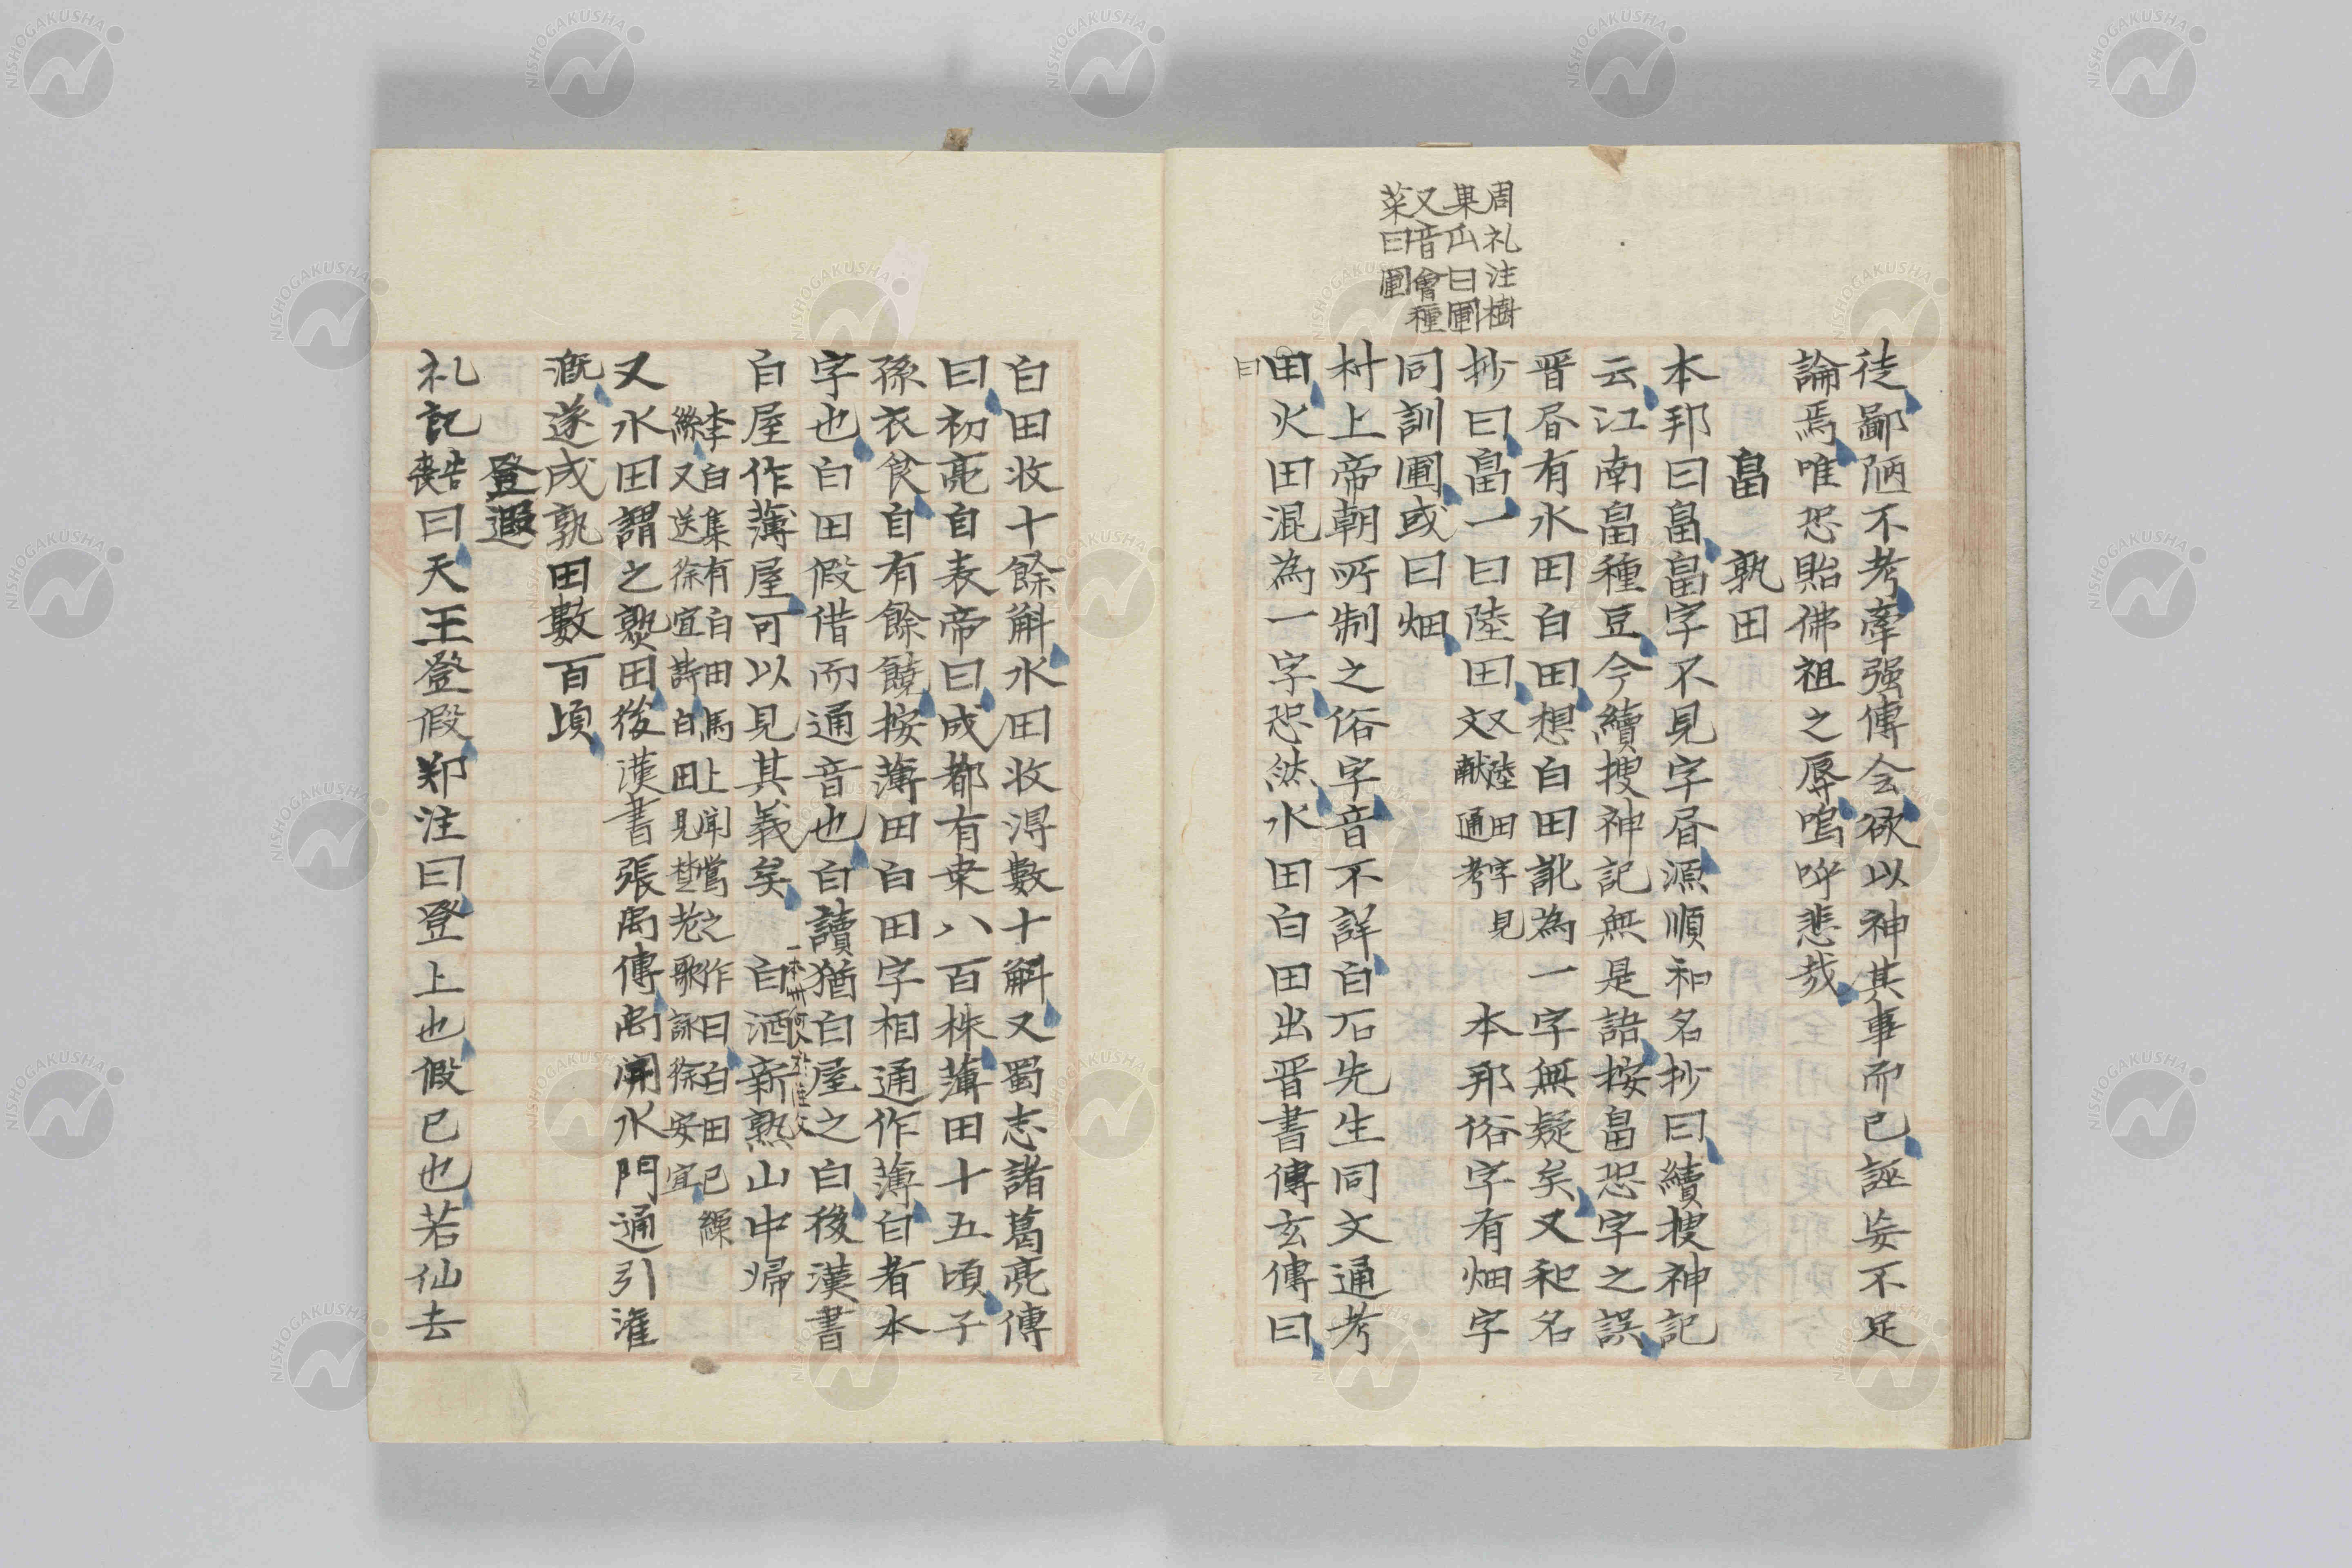 周礼注樹
果蓏曰圃
又音會種
菜曰圃
徒鄙陋不考牽强傅会欲以神其事而已誣妄不足
論焉唯恐貽佛祖之辱嗚呼悲哉
畠　孰田
本邦曰畠畠字不見字昏源順和名抄曰續搜神記
云江南畠種豆今續搜神記無是語按畠恐字之誤
晋昏有水田白田想白田訛為一字無疑矣又和名
抄曰畠一曰陸田又陸田字見文献通考　本邦俗字有畑字
同訓圃或曰畑
村上帝朝所制之俗字音不詳白石先生同文通考
曰
田火田混為一字恐然水田白田出晋書傅玄傳曰
白田收十餘斛水田收得數十斛又蜀志諸葛亮傳
曰初亮自表帝曰成都有桒八百株薄田十五頃子
孫衣食自有餘饒按薄田白田字相通作薄白者本
字也白田假借而通音也白讀猶白屋之白後漢書
白屋作薄屋可以見其義矣　白酒新熟山中帰
李白集有白田馬上闻鶯之作曰白田已繰
絲又送徐宜詩白田見楚老歌詠徐安宜
又水田謂之熟田後漢書張禹傳禹開水門通引灌
漑遂成孰田數百頃
登遐
礼記告喪曰天王登假郑注曰登上也假已也若仙去